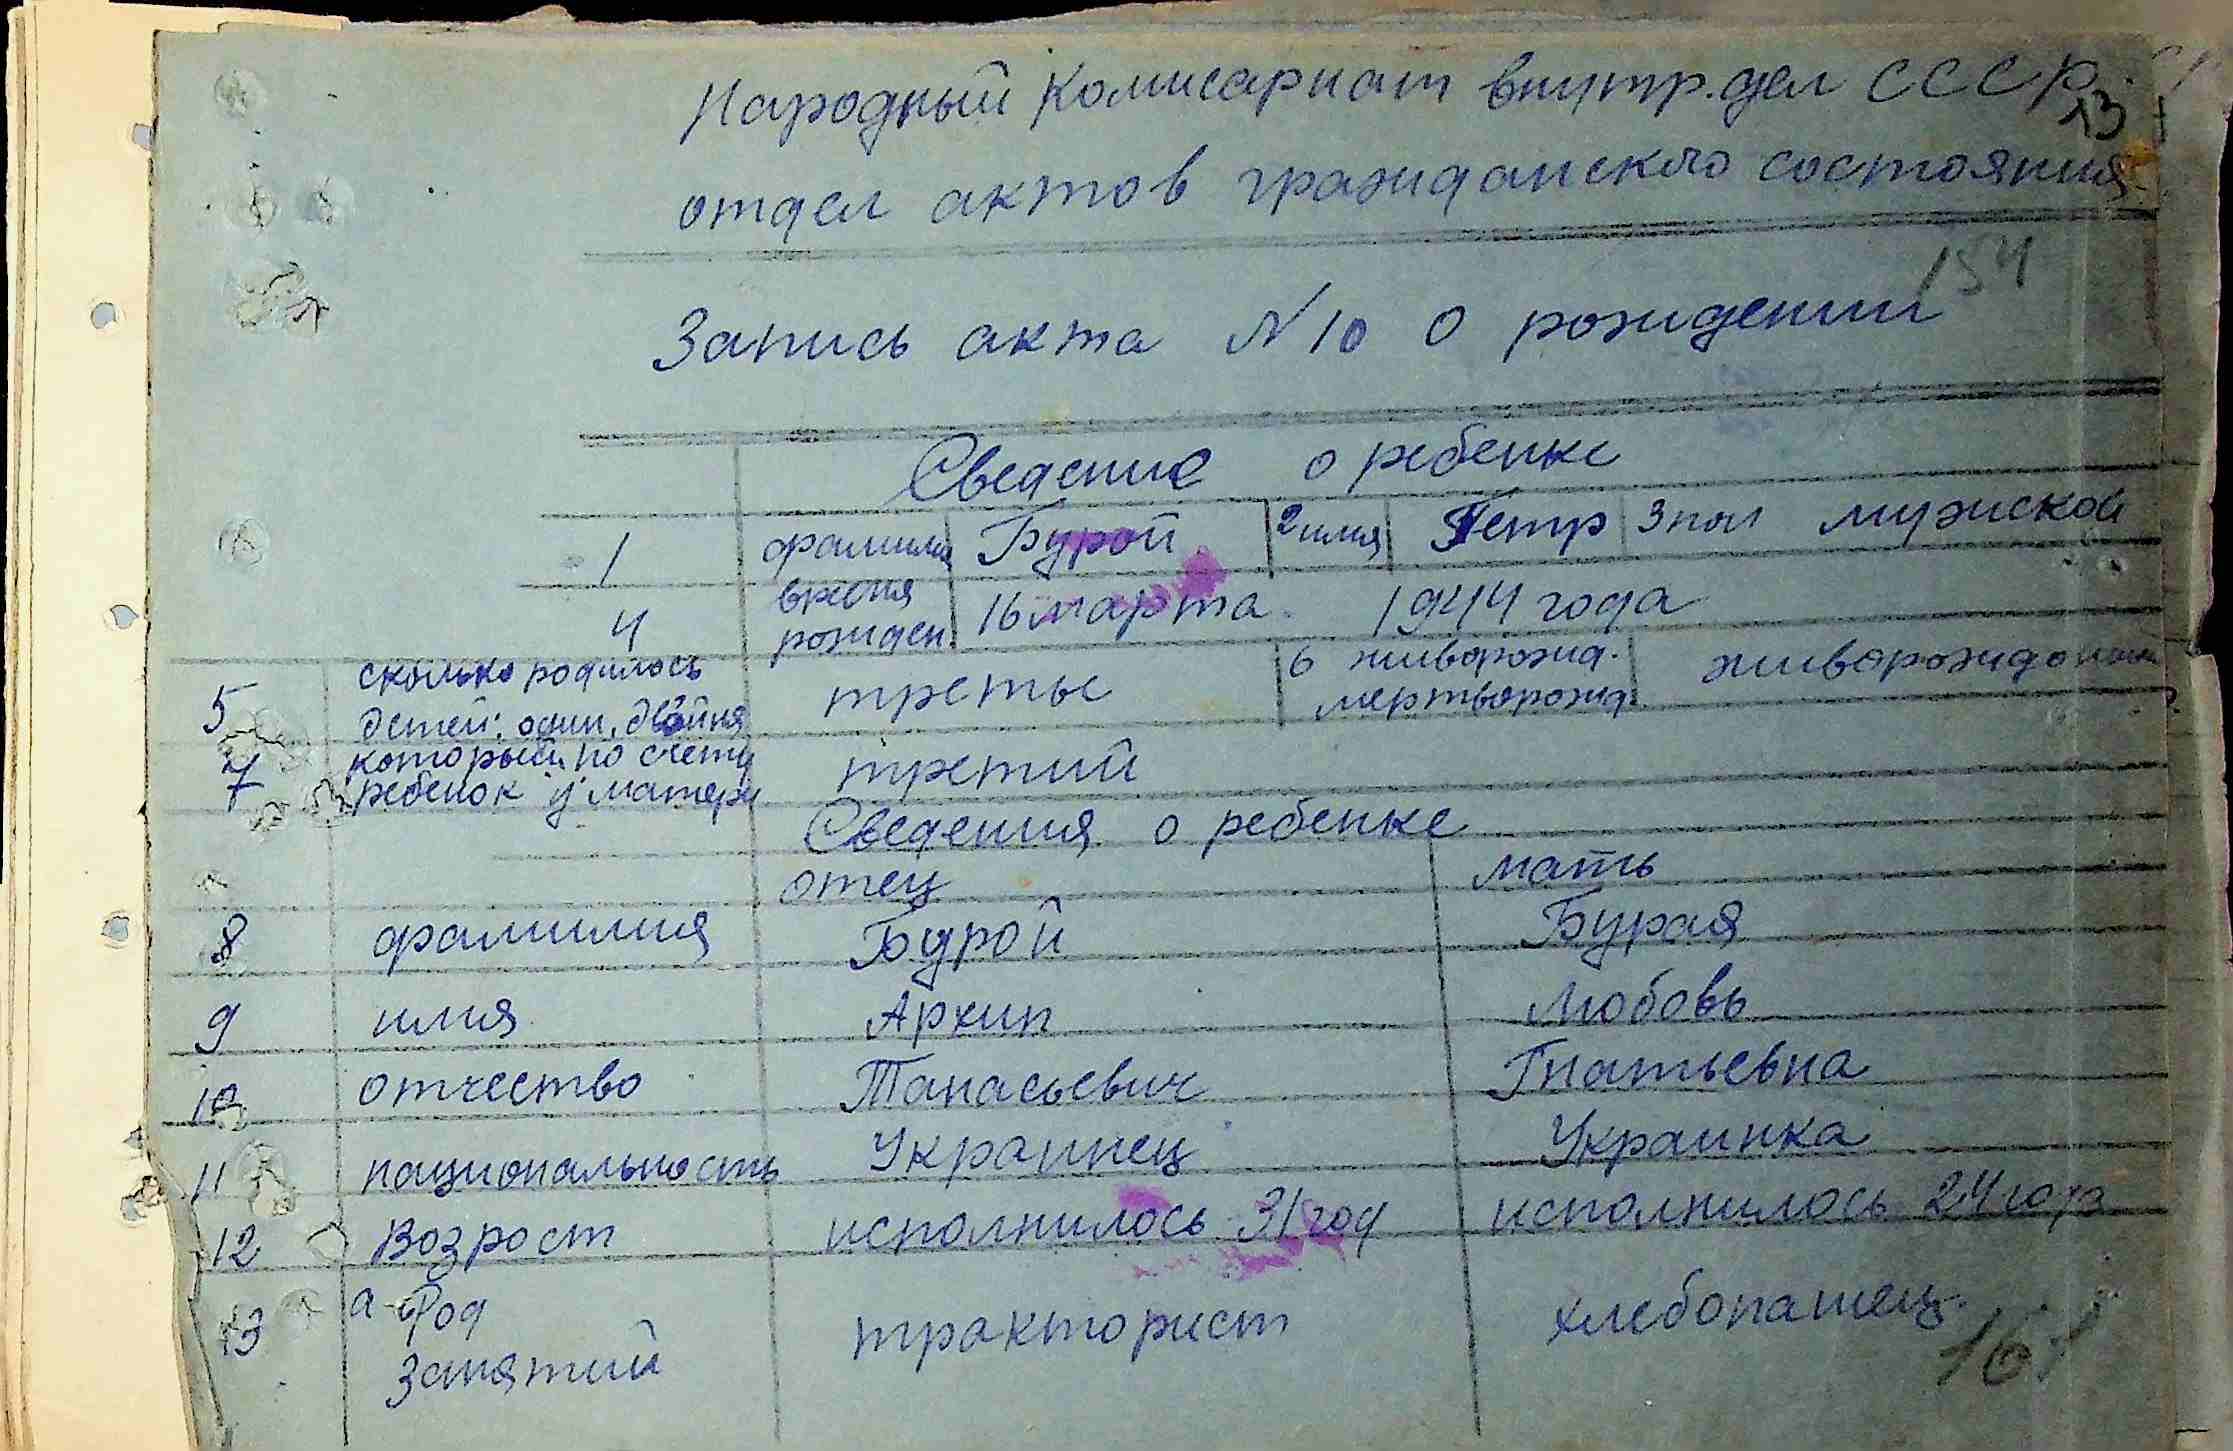 Народный Комисариат внутр. дел СССР.
13
отдел актов гражданского состояния
154
Запись акта N 10 о рождении
Сведение о ребенке
1 фамилия Бурой 2 имя Петр 3 пол мужской
4 время рожден. 16 марта 1944 года
5 сколько родилось детей: один, двойня третье 6 живорожд. мертворожд.
7 который по счету ребенок у матери третий
Сведения о ребенке
отец мать
8 фамилия Бурой Бурая
9 имя Архип Любовь
10 отчество Танасьевич Гнатьевна
11 национальность Украинец Украинка
12 Возрост исполнилось 31 год исполнилось 24 года
13 а Род занятий тракторист хлебопашец
161